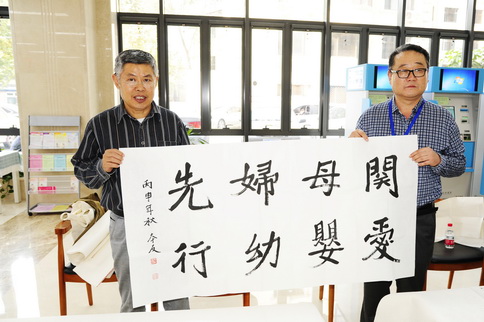 関愛
母嬰
婦幼
先行
丙申年秋